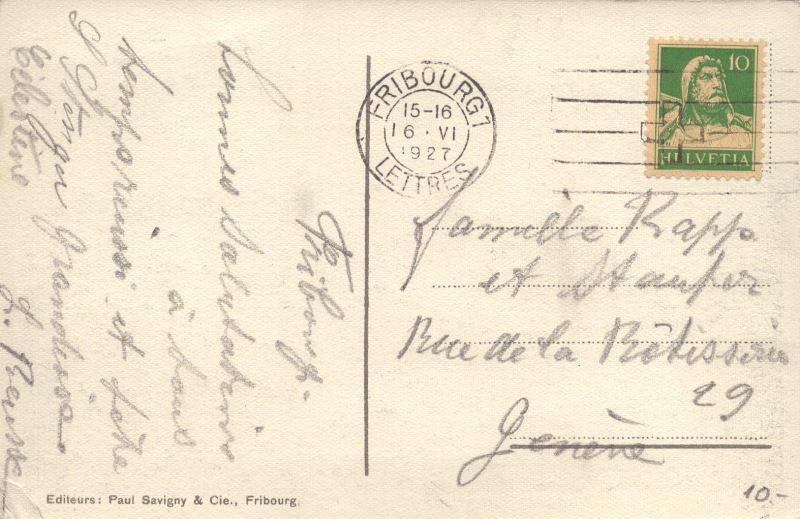 Fribourg.
Bonnes Salutations
à tous
temps reussi et fête
grandiose
FRIBOURG 1
15-16
16 · VI
1927
LETTRES
10
HELVETIA
Famille Rapp
et Staufer
Rue de la Rôtisserie
29
Genève
Editeurs: Paul Savigny & Cie., Fribourg.
10.-